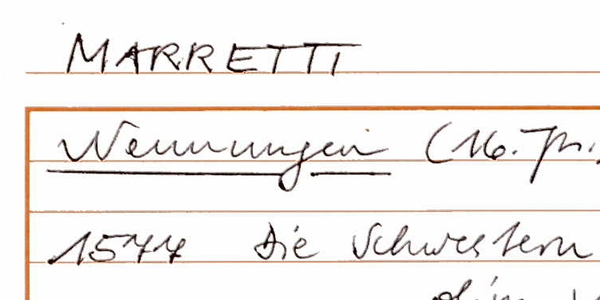 MARRETTI
Nennungen (16. Jh.
1577 Die Schwestern